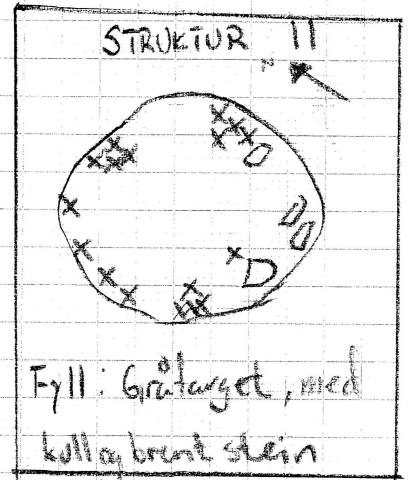 STRUKTUR 11
N
Fyll: Gråtarget, med
kull og brent stein